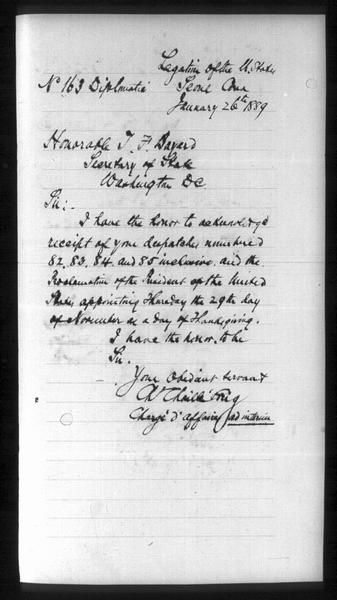 Legation of the U. States
Nº 163 Diplomatic Seoul Corea
January 26th 1889
Honorable T. F. Bayard
Secretary of State
Washington DC
Sir:-
I have the honor to acknowledge
receipt of your despatches numbered
82, 83, 84, and 85 inclusive and the
Proclamation of the President of the United
States appointing Thursday the 29th day
of November as a day of thanksgiving.
I have the honor to be
Sir.
Your obedient servant
Chargé d'affaires ad interim